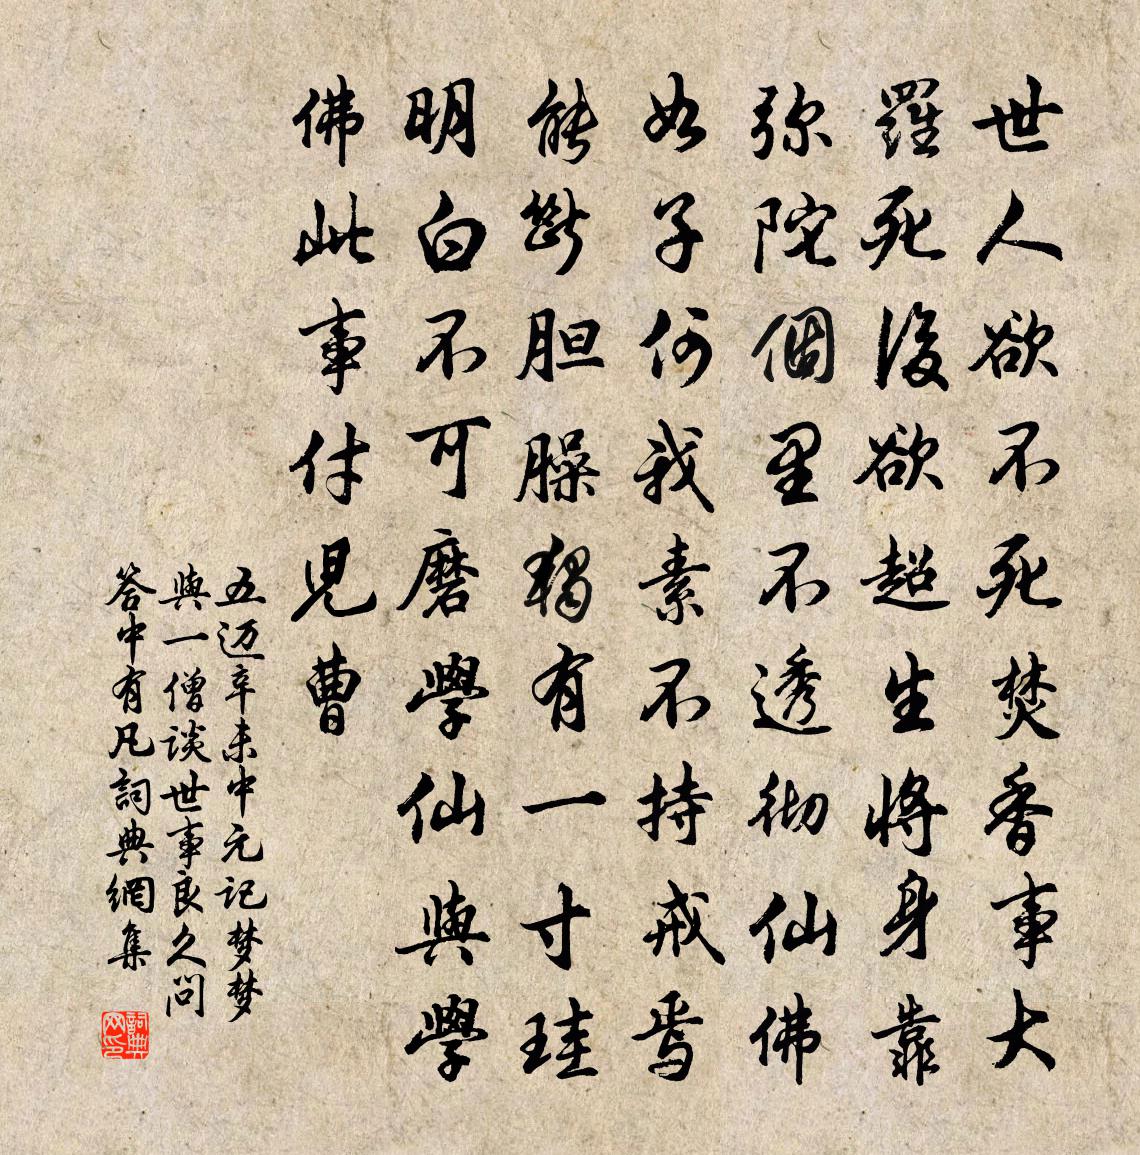 世人欲不死焚香事大
羅死後欲超生將身靠
弥陀個里不透彻仙佛
如子何我素不持戒焉
能斷胆臊獨有一寸珪
明白不可磨學仙與學
佛此事付兒曹
五迈辛未中元记梦梦
與一僧谈世事良久問
答中有凡詞典網集
詞典
网印